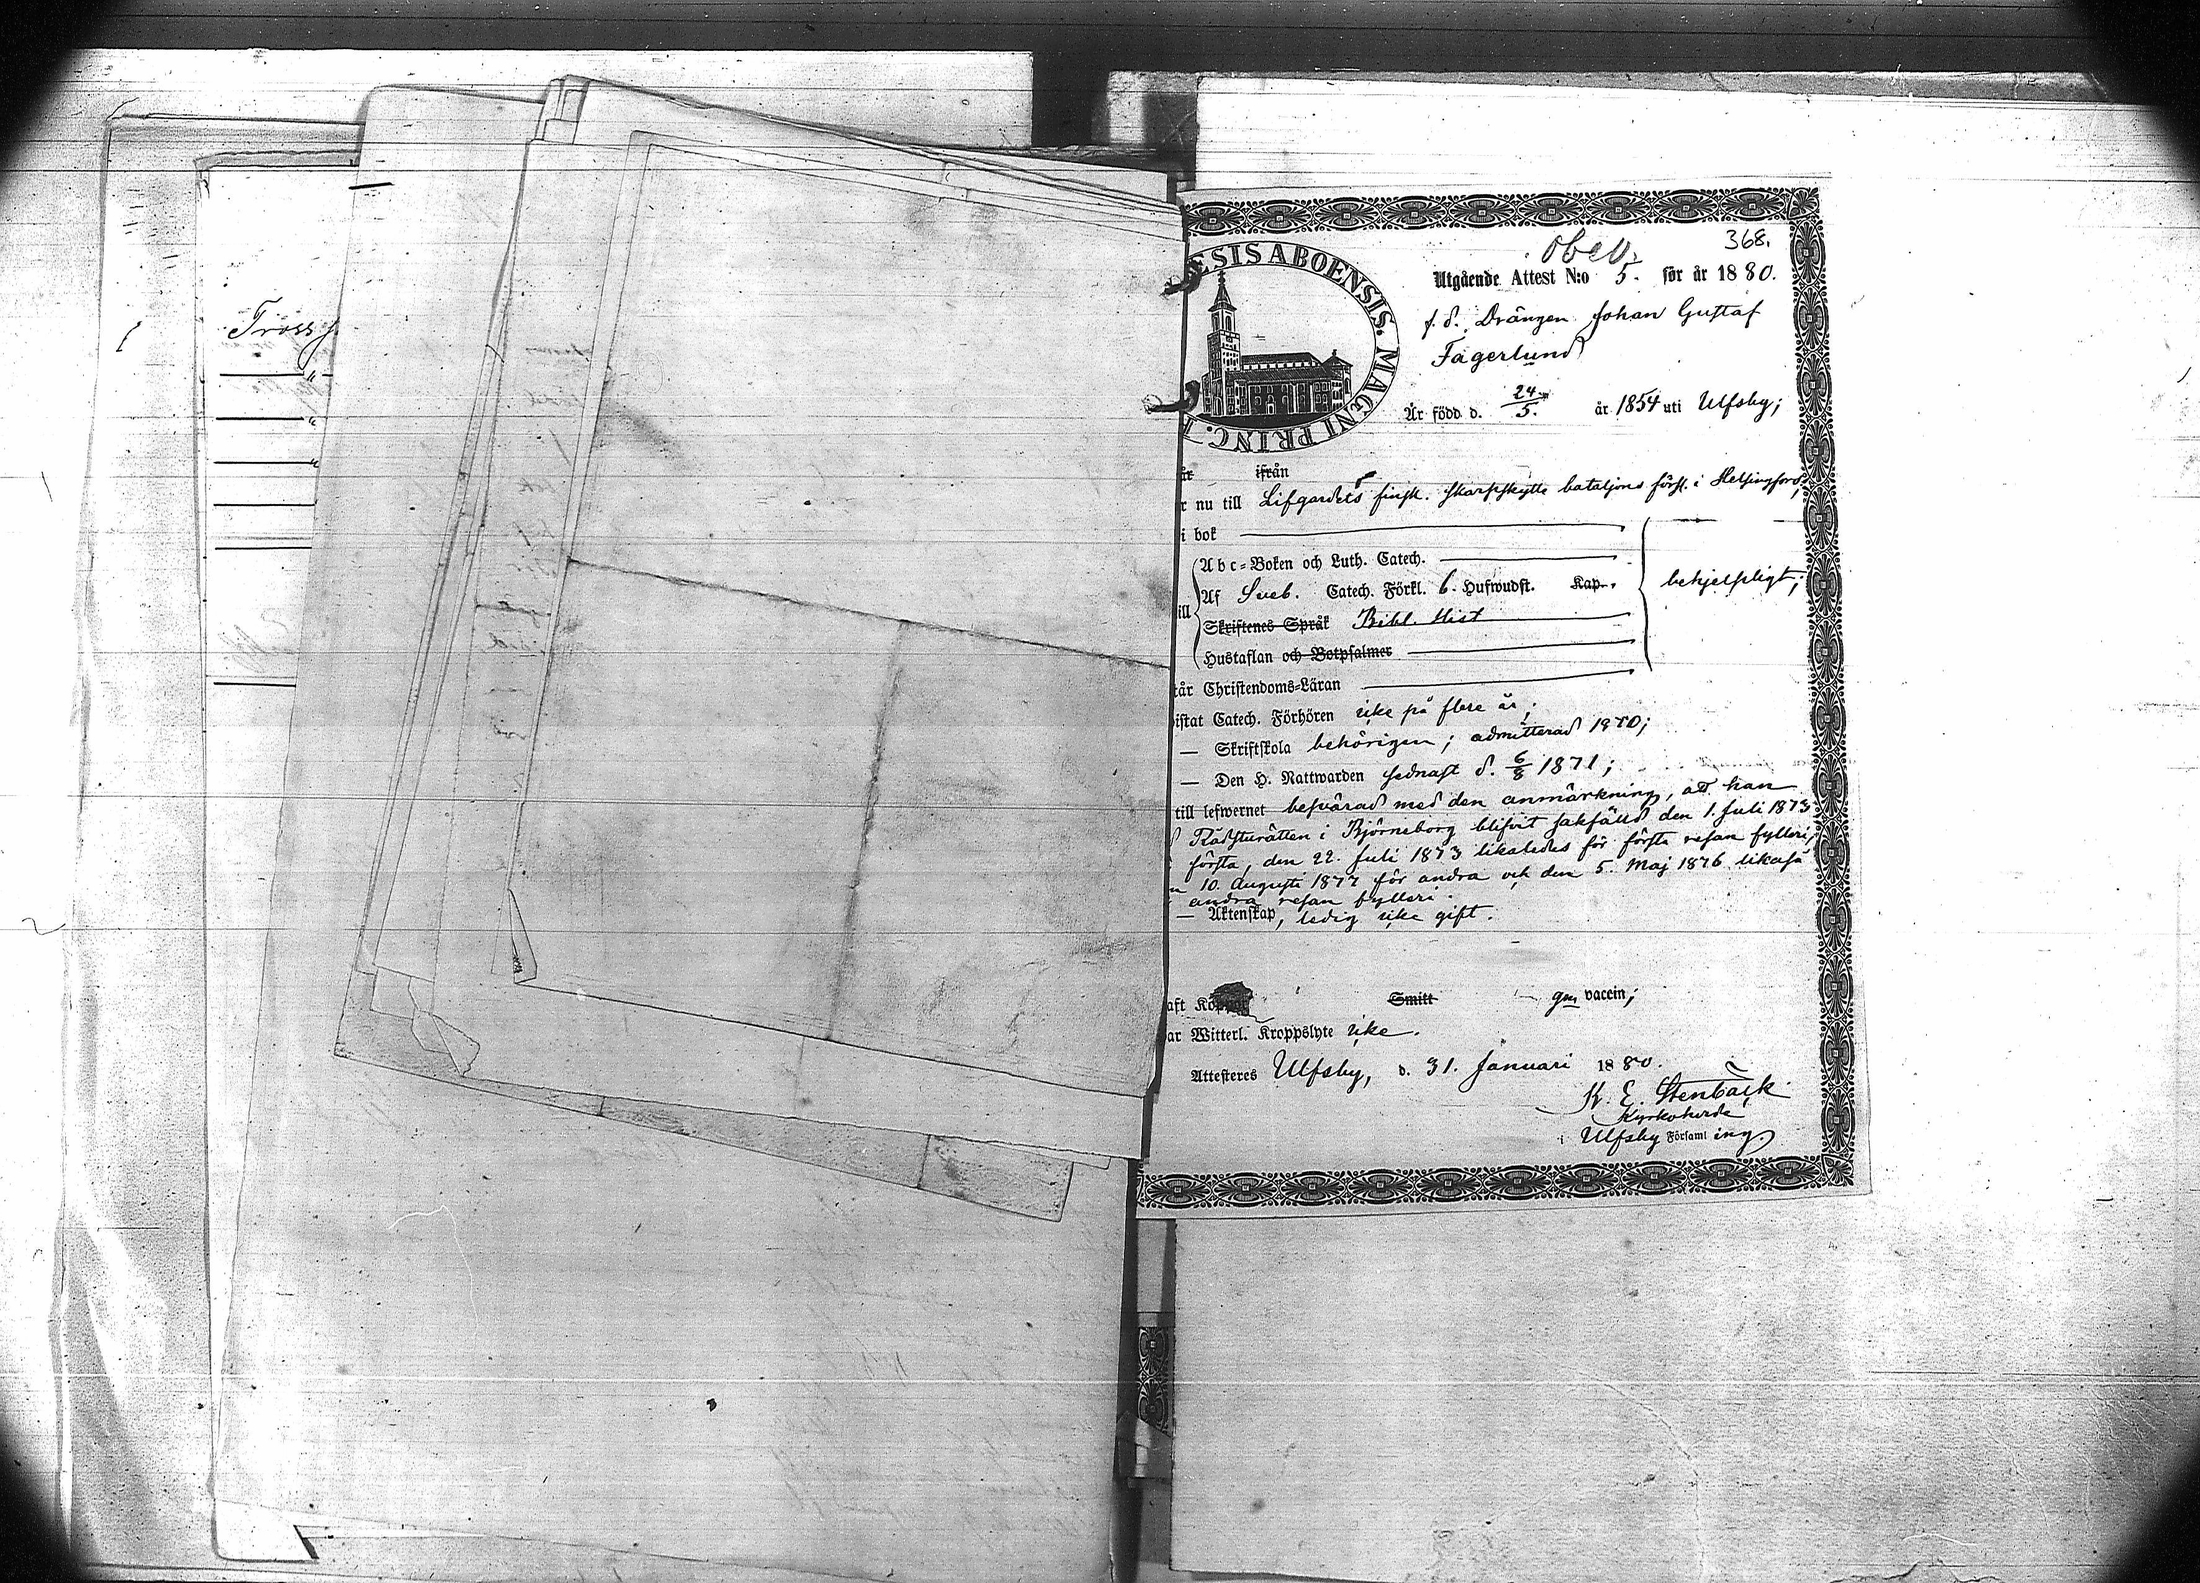 Tross
368.
obev.
Utgående Attest N:o 5. för år 1880.
ESIS ABOENSIS. MAGNI PRINC.
f. d. Drängen Johan Gustaf
Fagerlund
Är född d. 24/5. år 1854 uti Ulfsby;
ifrån
nu till Lifgardets finsk. skarpskytte bataljons förs. i Helsingfors,
i bok
Abc-Boken och Luth. Catech.
Af Sveb. Catech. Förkl. 6. Hufwudst. Kap. behjelpligt;
Skriftenes Språk Bibl. Hist
Hustaflan och Botpsalmer
Christendoms-Läran
istat Catech. Förhören icke på flere år;
— Skriftskola behörigen; admitterad 1870;
— Den H. Nattwarden sednast d. 6/8 1871;
till lefwernet besvärad med den anmärkning, att han
Rådsturätten i Björneborg blifvit sakfälld den 1. Juli 1873
första, den 22. Juli 1873 likaledes för första resan fylleri,
10. Augusti 1877 för andra och den 5. Maj 1876 likaså
andra resan fylleri.
— Äktenskap, ledig icke gift.
aft Koppor Smitt gm vaccin;
ar Witterl. Kroppslyte icke.
Attesteres Ulfsby, d. 31. Januari 1880.
K. E. Stenbäck
Kyrkoherde
i Ulfsby Församling.